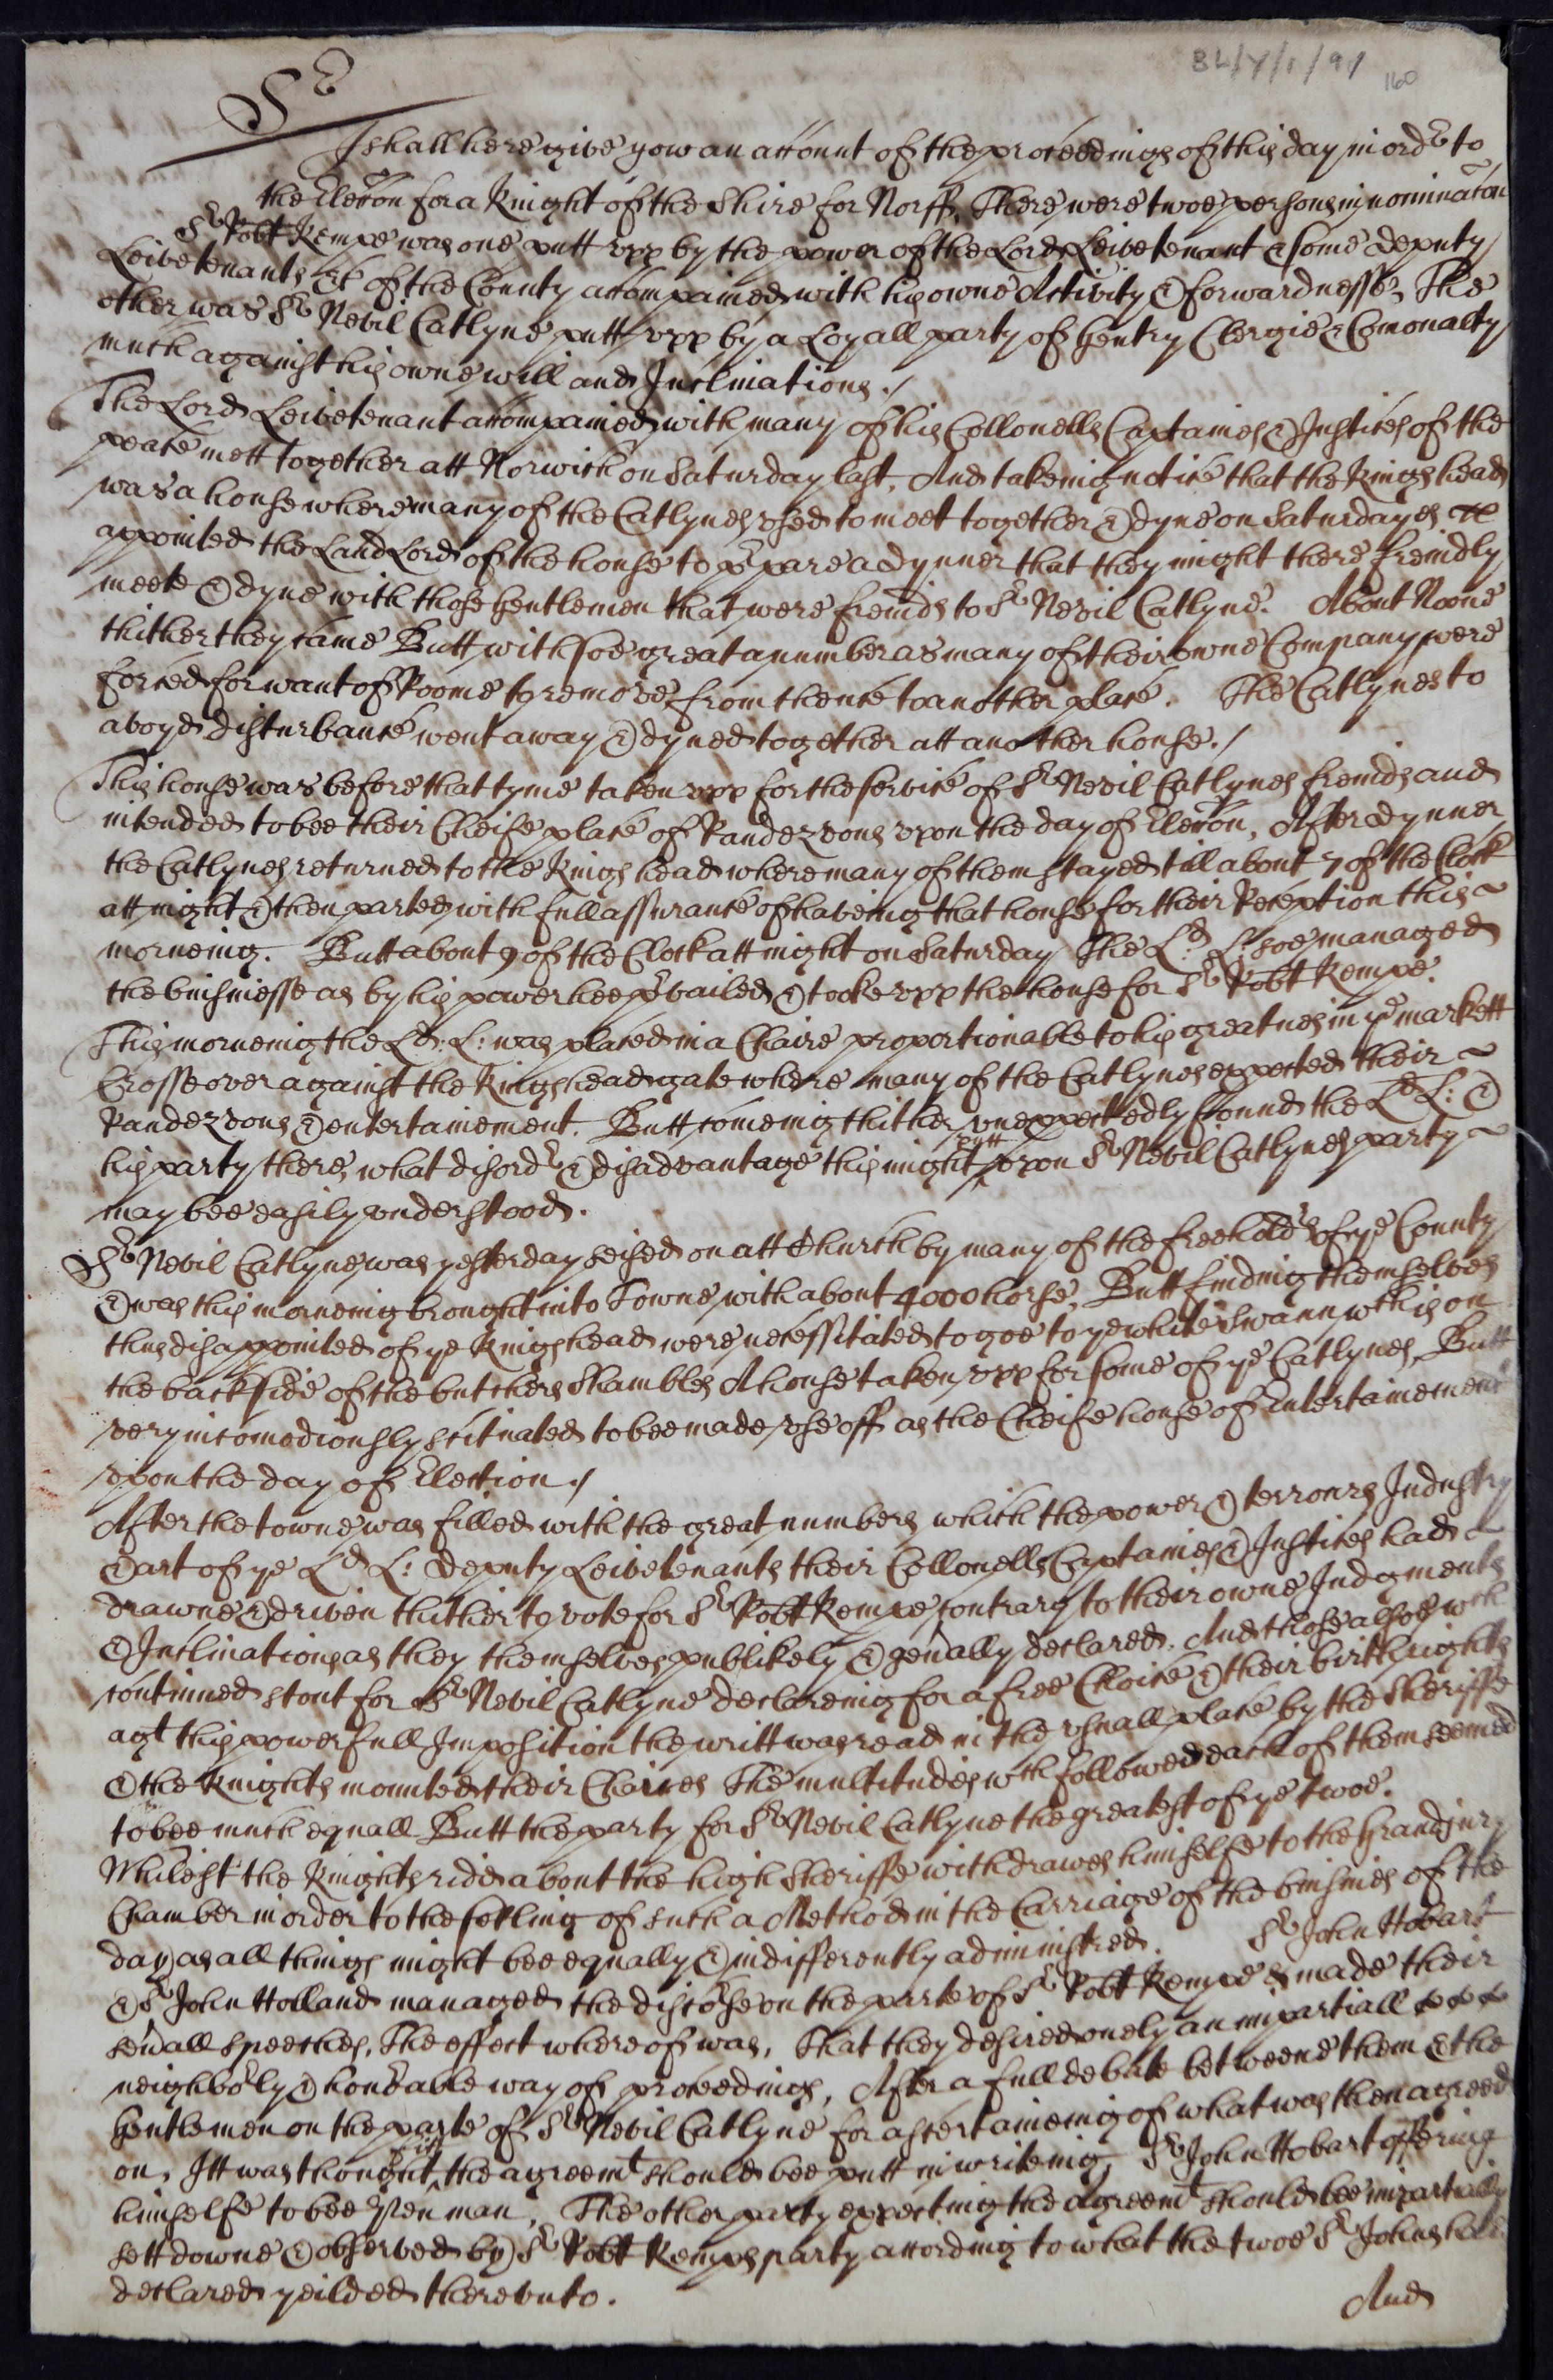 BL/Y/1/91
160
Sr
I shall here give yow an account of the proceedings of this day in ordr to
the Eleccon for a Knight of the Shire for Norff, There were twoe persons in nominacon
Sr Robt Kempe was one putt vpp by the power of the Lord Leivetenant & some deputy
Leivetenants &c of the County accompained with his owne Activity & forwardnesse, The
other was Sr Nevil Catlyne putt vpp by a Loyall party of Gentry Clergie & Comonalty
much against his owne will and Inclinations./
The Lord Leivetenant accompained with many of his Collonells Captaines & Justices of the
peace mett together att Norwich on Saturday last, And takeing notice that the Kings head
was a house where many of the Catlynes vsed to meet together & dyne on Saturdayes
appointed the Land Lord of the house to prpare a dynner that they might there freindly
meete & dyne with those Gentlemen that were freinds to Sr Nevil Catlyne. About Noone
thither they came Butt with soe great a number as many of their owne Company were
forced for want of Roome to remove from thence to another place. The Catlynes to
avoyd disturbance went away & dyned together att another house./
This house was before that tyme taken vpp for the service of Sr Nevil Catlynes freinds and
intended to bee their Cheife place of Randezvous vpon the day of Eleccon, After dynner
the Catlynes returned to the Kings head where many of them stayed till about 7 of the Clock
att night & then parted with full assurance of haveing that house for their Reception this ~
morneing. Butt about 9 of the Clock att night on Saturday The Ld: L: soe managed
the buisinesse as by his power hee prvailed & tooke vpp the house for Sr Robt Kempe.
This morneing the Ld: L: was placed in a Chaire proportionable to his greatnes in ye markett
Crosse over against the Kings head gate where many of the Catlynes expected their ~
Randezvous & entertainement. Butt comeing thither vnexpectedly found the Ld L: &
his party there, what disordr & disadvantage this might putt vpon Sr Nevil Catlynes party ~
may bee easily vnderstood.
Sr Nevil Catlyne was yesterday seised on att Church by many of the freeholdrs of ye County
& was this morneing brought into Towne with about 4000 horse, Butt finding themselves
thus disappointed of ye Kings head were necessitated to goe to ye white Swann wch is on
the backside of the butchers Shambles A house taken vpp for some of ye Catlynes, Butt
very incomodiously scituated to bee made vse off as the Cheife house of Entertainement
vpon the day of Election./
After the towne was filled with the great numbers which the power & terrours Industry
& art of ye Ld L: Deputy Leivetenants their Collonells Captaines & Justices had ~
drawne & driven thither to vote for Sr Robt Kempe contrary to their owne Judgments
& Inclinations as they themselves publikely & genally declared. And those alsoe wch
continued stout for Sr Nevil Catlyne declareing for a free Choice & their birthrights
agt this powerfull Imposition the writt was read in the vsuall place by the Sheriffe
& the Knights mounted their Chaires The multitudes wch followed each of them seemed
to bee much equall Butt the party for Sr Nevil Catlyne the greatest of ye twoe.
Whilest the Knights ride about the high Sheriffe withdrawes himselfe to the Grandjury
Chamber in order to the setling of such a Method in the Carriage of the buisines of the
day as all things might bee equally & indifferently administred. Sr John Hobart
& Sr John Holland managed the discorse on the parte of Sr Robt Kempe & made their
seuall speeches, The effect whereof was, That they desired onely an impartiall
neighborly & honorable way of proceedings, After a full debate betweene them & the
Gentlemen on the parte of Sr Nevil Catlyne for ascertaineing of what was then agreed
on, Itt was thought fitt the agreemt should bee putt in writeing, Sr John Hobart offering
himselfe to bee Pen man, The other party expecting the agreemt should bee impartially
sett downe & observed by Sr Robt Kemps party according to what the twoe Sr Johns had
declared yeilded therevnto.
And